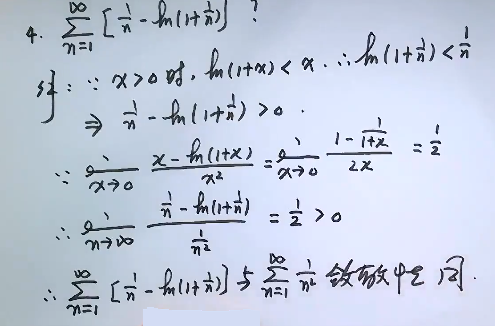 4. ∑_{n=1}^{∞} [1/n - ln(1+1/n)] ?
解: ∵ x>0时, ln(1+x) < x. ∴ ln(1+1/n) < 1/n
⇒ 1/n - ln(1+1/n) > 0.
∵ lim_{x→0} (x - ln(1+x))/x² = lim_{x→0} (1 - 1/(1+x))/(2x) = 1/2
∴ lim_{n→∞} (1/n - ln(1+1/n))/(1/n²) = 1/2 > 0
∴ ∑_{n=1}^{∞} [1/n - ln(1+1/n)] 与 ∑_{n=1}^{∞} 1/n² 敛散性同.